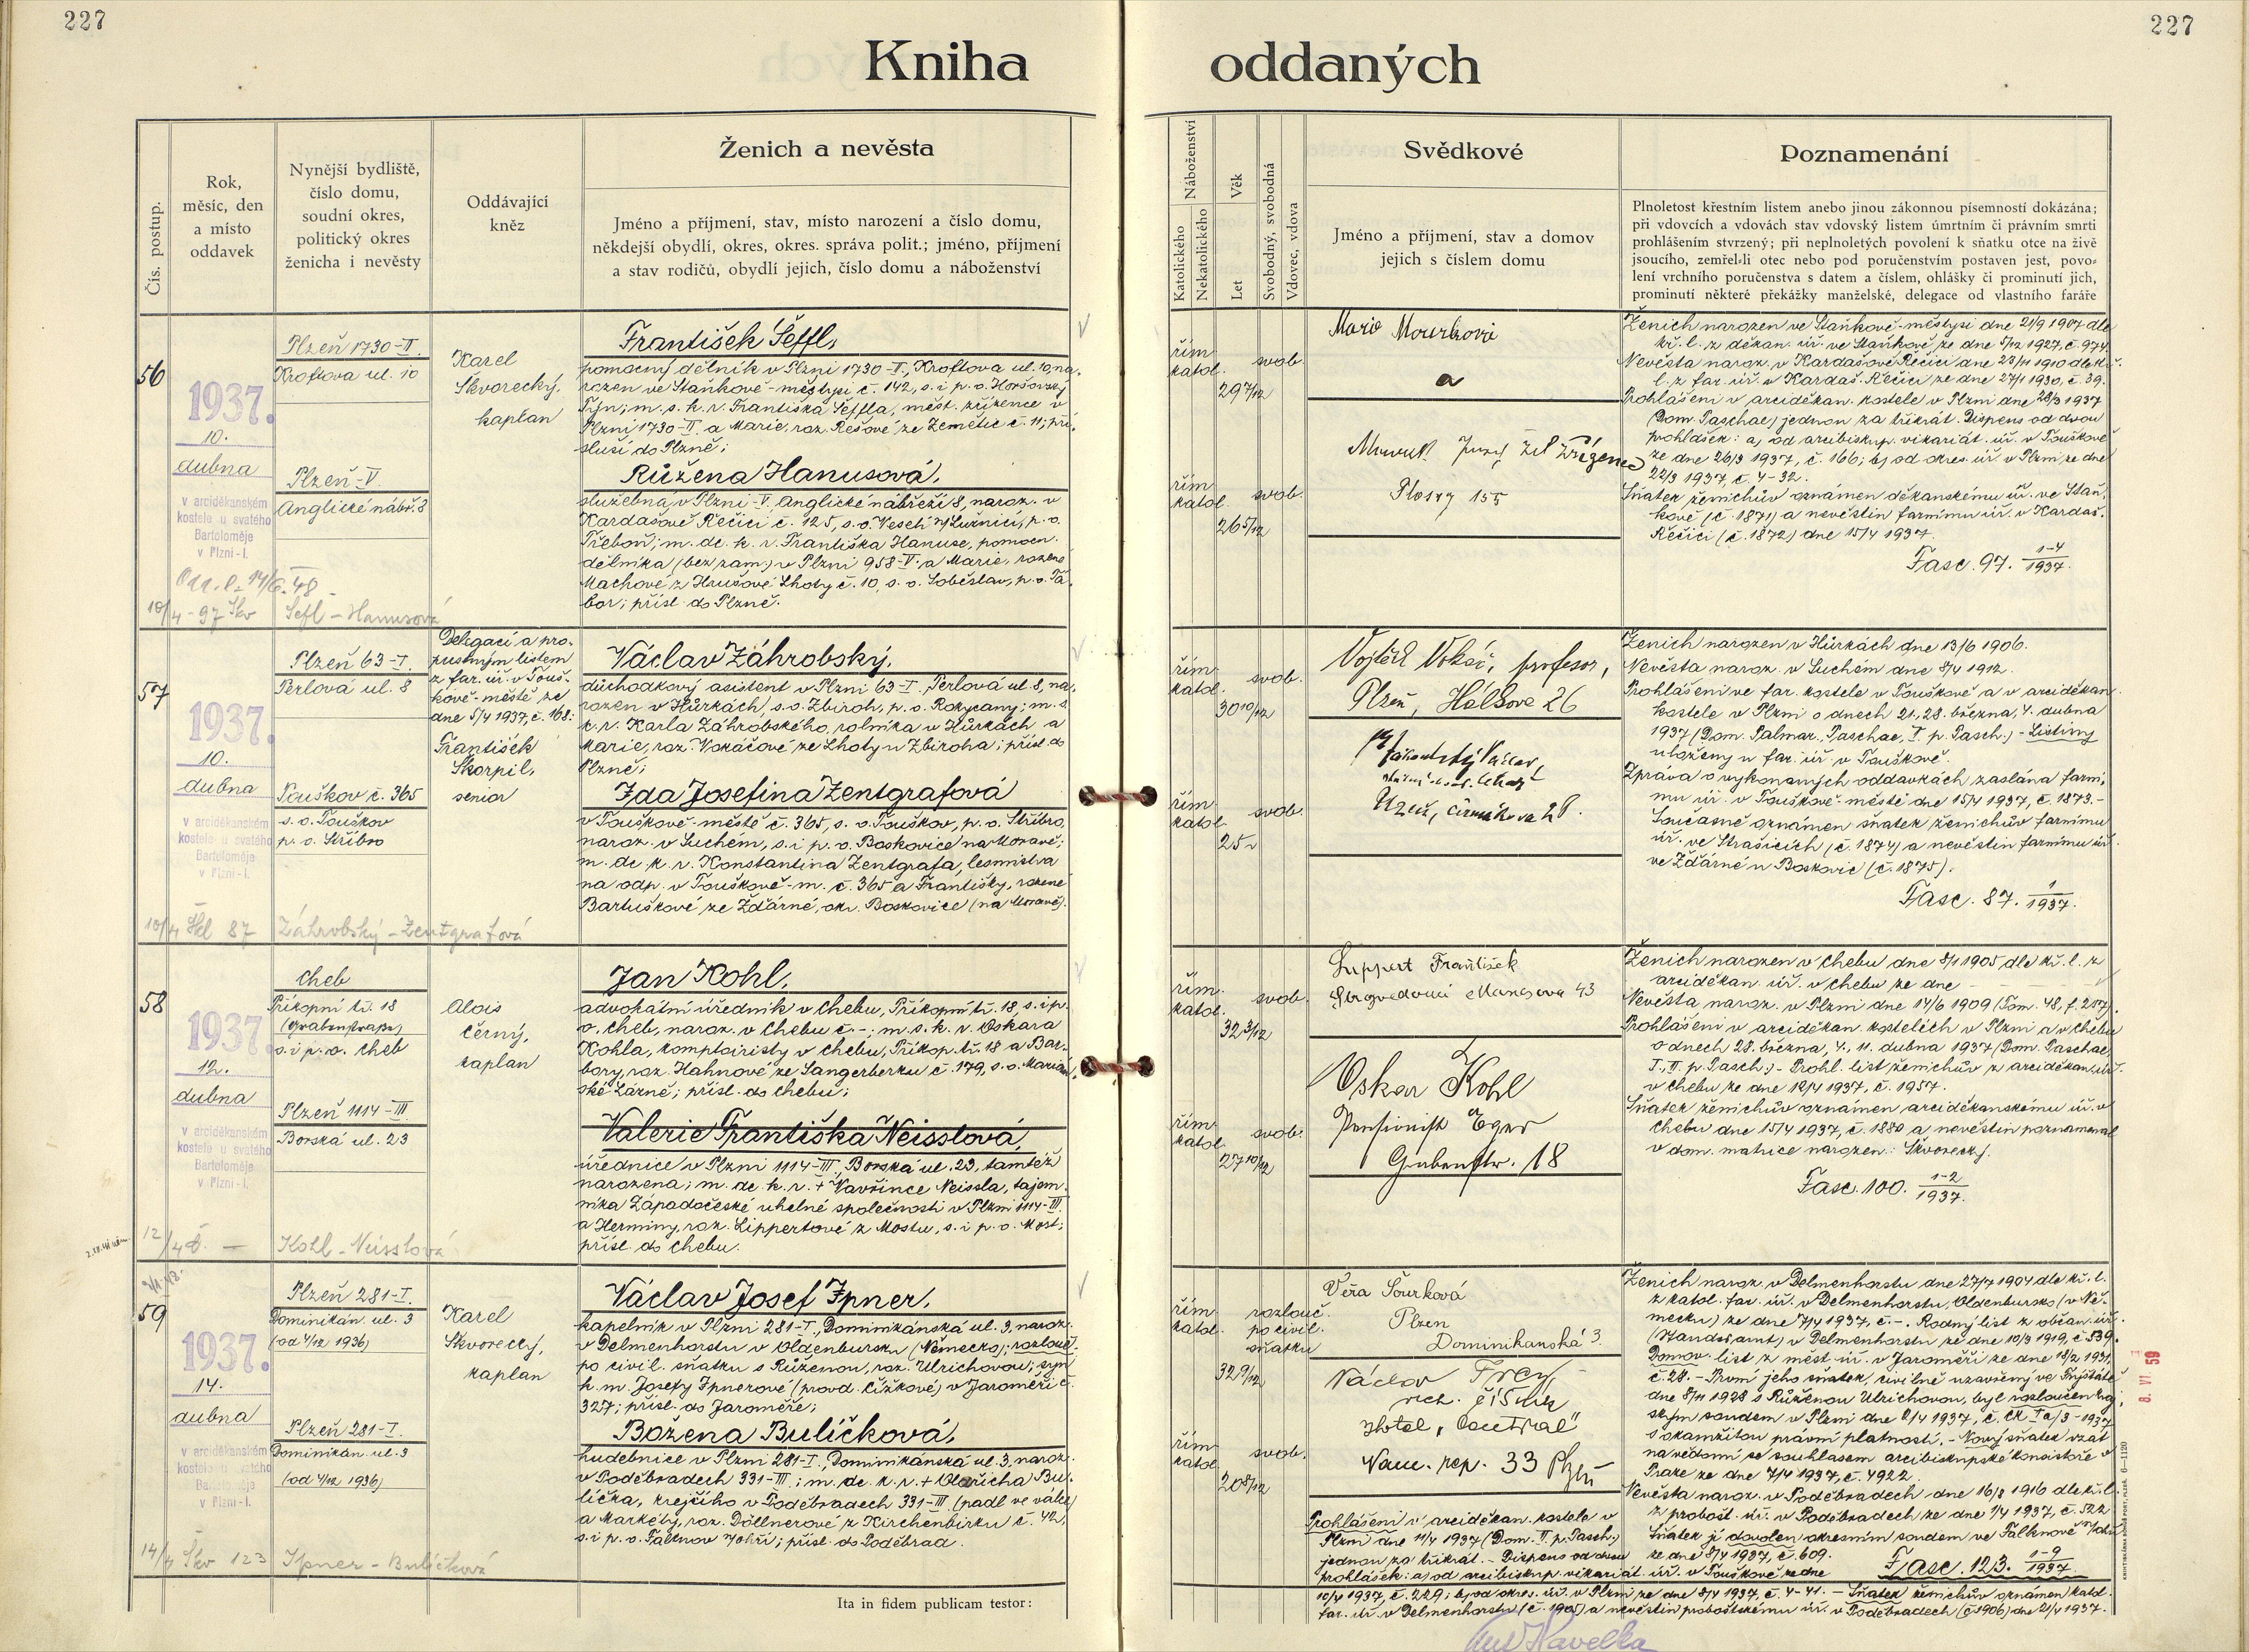 227
227
Kniha oddaných
Čís. postup.
Rok,
měsíc, den
a místo
oddavek
Nynější bydliště,
číslo domu,
soudní okres,
politický okres
ženicha i nevěsty
Oddávající
kněz
Ženich a nevěsta
Jméno a příjmení, stav, místo narození a číslo domu,
někdejší obydlí, okres, okres. správa polit.; jméno, příjmení
a stav rodičů, obydlí jejich, číslo domu a náboženství
Náboženství
Katolického
Nekatolického
Věk
Let
Svobodný, svobodná
Vdovec, vdova
Svědkové
Jméno a příjmení, stav a domov
jejich s číslem domu
Poznamenání
Plnoletost křestním listem anebo jinou zákonnou písemností dokázána;
při vdovcích a vdovách stav vdovský listem úmrtním či právním smrti
prohlášením stvrzený; při neplnoletých povolení k sňatku otce na živě
jsoucího, zemřel-li otec nebo pod poručenstvím postaven jest, povo-
lení vrchního poručenstva s datem a číslem, ohlášky či prominutí jich,
prominutí některé překážky manželské, delegace od vlastního faráře
56
1937.
10.
dubna
v arciděkanském
kostele u svatého
Bartoloměje
v Plzni-I.
Plzeň 1730-II.
Kroftova ul. 10
Plzeň-V.
Anglické nábř. 8
Karel
Skvorecký,
kaplan
František Šeffl,
pomocný dělník v Plzni 1730-II, Kroftova ul. 10, na-
rozen ve Staňkově-městysi č. 142, s. i p. o. Horšovský
Týn; m. s. k. r. Františka Šeffla, měst. zřízence v
Plzni 1730-II a Marie, roz. Rešové ze Zemětic č. 11; pří-
sluší do Plzně;
Růžena Hanusová,
služebná v Plzni-V. Anglické nábřeží 8, naroz. v
Kardašově Řečici č. 125, s. o. Veselí n/Lužnicí, p. o.
Třeboň; m. dc. k. r. Františka Hanuse, pomocn.
dělníka (bez zam.) v Plzni 958-V. a Marie, rozené
Machové z Hrušové Lhoty č. 10, s. o. Soběslav, p. o. Tá-
bor; přísl. do Plzně.
10/4 - 97 Škv Šefl - Hanusová
řím.
katol.
svob.
29 7/12
řím.
katol.
svob.
26 5/12
a
Plosry 155
Ženich narozen ve Staňkově-městysi dne 21/9 1907 dle
kř. l. z děkan. úř. ve Staňkově ze dne 5/12 1927, č. 974.
Nevěsta naroz. v Kardašově Řečici dne 23/11 1910 dle kř.
l. z far. úř. v Kardaš. Řečici ze dne 27/1 1930, č. 39.
Prohlášeni v arciděkan. kostele v Plzni dne 28/3 1937
(Dom. Paschae) jednou za třikrát. Dispens od dvou
prohlášek: a) od arcibiskup. vikariát. úř. v Touškově
ze dne 26/3 1937, č. 166; b) od okres. úř. v Plzni ze dne
22/3 1937, č. 4-32.
Sňatek ženichův oznámen děkanskému úř. ve Staň-
kově (č. 1871) a nevěstin farnímu úř. v Kardaš.
Řečici (č. 1872) dne 15/4 1937.
Fasc. 97. 1-4/1937.
57
1937.
10.
dubna
v arciděkanském
kostele u svatého
Bartoloměje
v Plzni-I.
Plzeň 63-I.
Perlová ul. 8
Touškov č. 365
s. o. Touškov
p. o. Stříbro
Delegací a pro-
pustným listem
z far. úř. v Touš-
kově-městě ze
dne 5/4 1937, č. 168:
František
Skorpil,
senior
Václav Záhrobský,
důchodkový asistent v Plzni 63-I, Perlová ul. 8, na-
rozen v Hůrkách, s. o. Zbiroh, p. o. Rokycany; m. s.
k. r. Karla Záhrobského, rolníka v Hůrkách a
Marie, roz. Vokáčové ze Lhoty u Zbiroha; přísl. do
Plzně;
Ida Josefina Zentgrafová
v Touškově-městě č. 365, s. o. Touškov, p. o. Stříbro,
naroz. v Suchém, s. i p. o. Boskovice na Moravě;
m. dc. k. r. Konstantina Zentgrafa, lesmistra
na odp. v Touškově-m. č. 365 a Františky, rozené
Bartuškové ze Žďárné, okr. Boskovice (na Moravě).
10/4 Škl 87 Záhrobský - Zentgrafová
řím.
katol.
svob.
30 10/12
řím.
katol.
svob.
25
Vojtěch Vokáč, profesor,
Plzeň, Hálkova 26
Ženich narozen v Hůrkách dne 13/6 1906.
Nevěsta naroz. v Suchém dne 8/4 1912.
Prohlášeni ve far. kostele v Touškově a v arciděkan.
kostele v Plzni o dnech 21., 28. března, 4. dubna
1937 (Dom. Palmar., Paschae, I. p. Pasch.) - Listiny
uloženy u far. úř. v Touškově.
Zpráva o vykonaných oddavkách zaslána farní-
mu úř. v Touškově-městě dne 15/4 1937, č. 1873.-
Současně oznámen sňatek ženichův farnímu
úř. ve Strašicích (č. 1874) a nevěstin farnímu úř.
ve Žďárné u Boskovic (č. 1875).
Fasc. 87. 1/1937.
58
1937.
12.
dubna
v arciděkanském
kostele u svatého
Bartoloměje
v Plzni-I.
Cheb
Příkopní tř. 18
(Grabenstraße)
s. i p. o. Cheb
Plzeň 1114-III
Borská ul. 23
Alois
Černý,
kaplan
Jan Kohl,
advokátní úředník v Chebu, Příkopní tř. 18, s. i p.
o. Cheb, naroz. v Chebu č. -; m. s. k. r. Oskara
Kohla, komptoiristy v Chebu, Příkop. tř. 18 a Bar-
bory, roz. Hahnové ze Sangerberku č. 179, s. o. Marián-
ské Lázně; přísl. do Chebu;
Valerie Františka Neisslová,
úřednice v Plzni 1114-III, Borská ul. 23, tamtéž
narozena; m. dc. k. r. + Vavřince Neissla, tajem-
níka Západočeské uhelné společnosti v Plzni 1114-III
a Herminy, roz. Lippertové z Mostu, s. i p. o. Most;
přísl. do Chebu.
12/4 č. - Kohl - Neisslová
řím.
katol.
svob.
32 3/12
řím.
katol.
svob.
27 10/12
Lippert František
Strojvedoucí Manesova 43
Oskar Kohl
Pensionist Eger
Grabenstr. 18
Ženich narozen v Chebu dne 8/1 1905, dle kř. l. z
arciděkan. úř. v Chebu ze dne -
Nevěsta naroz. v Plzni dne 14/6 1909 (Tom. 48, f. 257).
Prohlášeni v arciděkan. kostelích v Plzni a v Chebu
o dnech 28. března, 4., 11. dubna 1937 (Dom. Paschae,
I., II. p. Pasch.) - Prohl. list ženichův z arciděkan. úř.
v Chebu ze dne 12/4 1937, č. 1957.
Sňatek ženichův oznámen arciděkanskému úř. v
Chebu dne 15/4 1937, č. 1880 a nevěstin poznamenal
v dom. matrice narozen.: Skvorecký.
Fasc. 100. 1-2/1937.
59
1937.
14.
dubna
v arciděkanském
kostele u svatého
Bartoloměje
v Plzni-I.
Plzeň 281-I.
Dominikán. ul. 3
(od 4/12 1936)
Plzeň 281-I.
Dominikán. ul. 3
(od 4/12 1936)
Karel
Skvorecký,
kaplan
Václav Josef Ipner,
kapelník v Plzni 281-I., Dominikánská ul. 3, naroz.
v Delmenhorstu v Oldenbursku (Německo); rozlouč.
po civil. sňatku s Růženou, roz. Ulrichovou; syn
k. m. Josefy Ipnerové (provd. Čížkové) v Jaroměři č.
327; přísl. do Jaroměře;
Božena Bulíčková,
hudebnice v Plzni 281-I., Dominikánská ul. 3, naroz.
v Poděbradech 331-III; m. dc. k. r. + Oldřicha Bu-
líčka, krejčího v Poděbradech 331-III (padl ve válce)
a Markéty, roz. Döllnerové z Kirchenbirku č. 42,
s. i p. o. Falknov n/Ohří; přísl. do Poděbrad.
14/4 Škv 123 Ipner - Bulíčková
Ita in fidem publicam testor:
řím.
katol.
rozlouč.
po civil.
sňatku
32 9/12
řím.
katol.
svob.
20 8/12
Věra Šourková
Plzen
Dominikanská 3
Václav Frey
vrch. číšník
Hotel „Central"
Nám. rep. 33 Plzeň
Prohlášeni v arciděkan. kostele v
Plzni dne 11/4 1937 (Dom. II. p. Pasch.)
jednou za třikrát. - Dispens od dvou
prohlášek: a) od arcibiskup. vikariát. úř. v Touškově ze dne
10/4 1937, č. 229; b) od okres. úř. v Plzni ze dne 8/4 1937, č. 4-41. - Sňatek ženichův oznámen katol.
far. úř. v Delmenhorstu (č. 1905) a nevěstin proboštskému úř. v Poděbradech (č. 1906) dne 21/4 1937.
Ženich naroz. v Delmenhorstu dne 27/7 1904 dle kř. l.
z katol. far. úř. v Delmenhorstu, Oldenbursko (v Ně-
mecku) ze dne 7/4 1937, č. -. Rodný list z občan. úř.
(Standesamt) v Delmenhorstu ze dne 10/3 1919, č. 539.
Domov. list z měst. úř. v Jaroměři ze dne 18/2 1931,
č. 28. - První jeho sňatek, civilně uzavřený ve Frýštátě
dne 8/11 1928 s Růženou Ulrichovou, byl rozloučen kraj-
ským soudem v Plzni dne 2/4 1937, č. Ck Ia/3-1937
s okamžitou právní platností. - Nový sňatek vzat
na vědomí se souhlasem arcibiskupské konsistoře v
Praze ze dne 7/4 1937, č. 4922.
Nevěsta naroz. v Poděbradech dne 16/8 1916 dle kř. l.
z probošt. úř. v Poděbradech ze dne 1/4 1937, č. 522
Sňatek jí dovolen okresním soudem ve Falknově n/Ohří
ze dne 8/4 1937, č. 609.
Fasc. 123. 1-9/1937.
8. VI. 59
Ant. Havelka